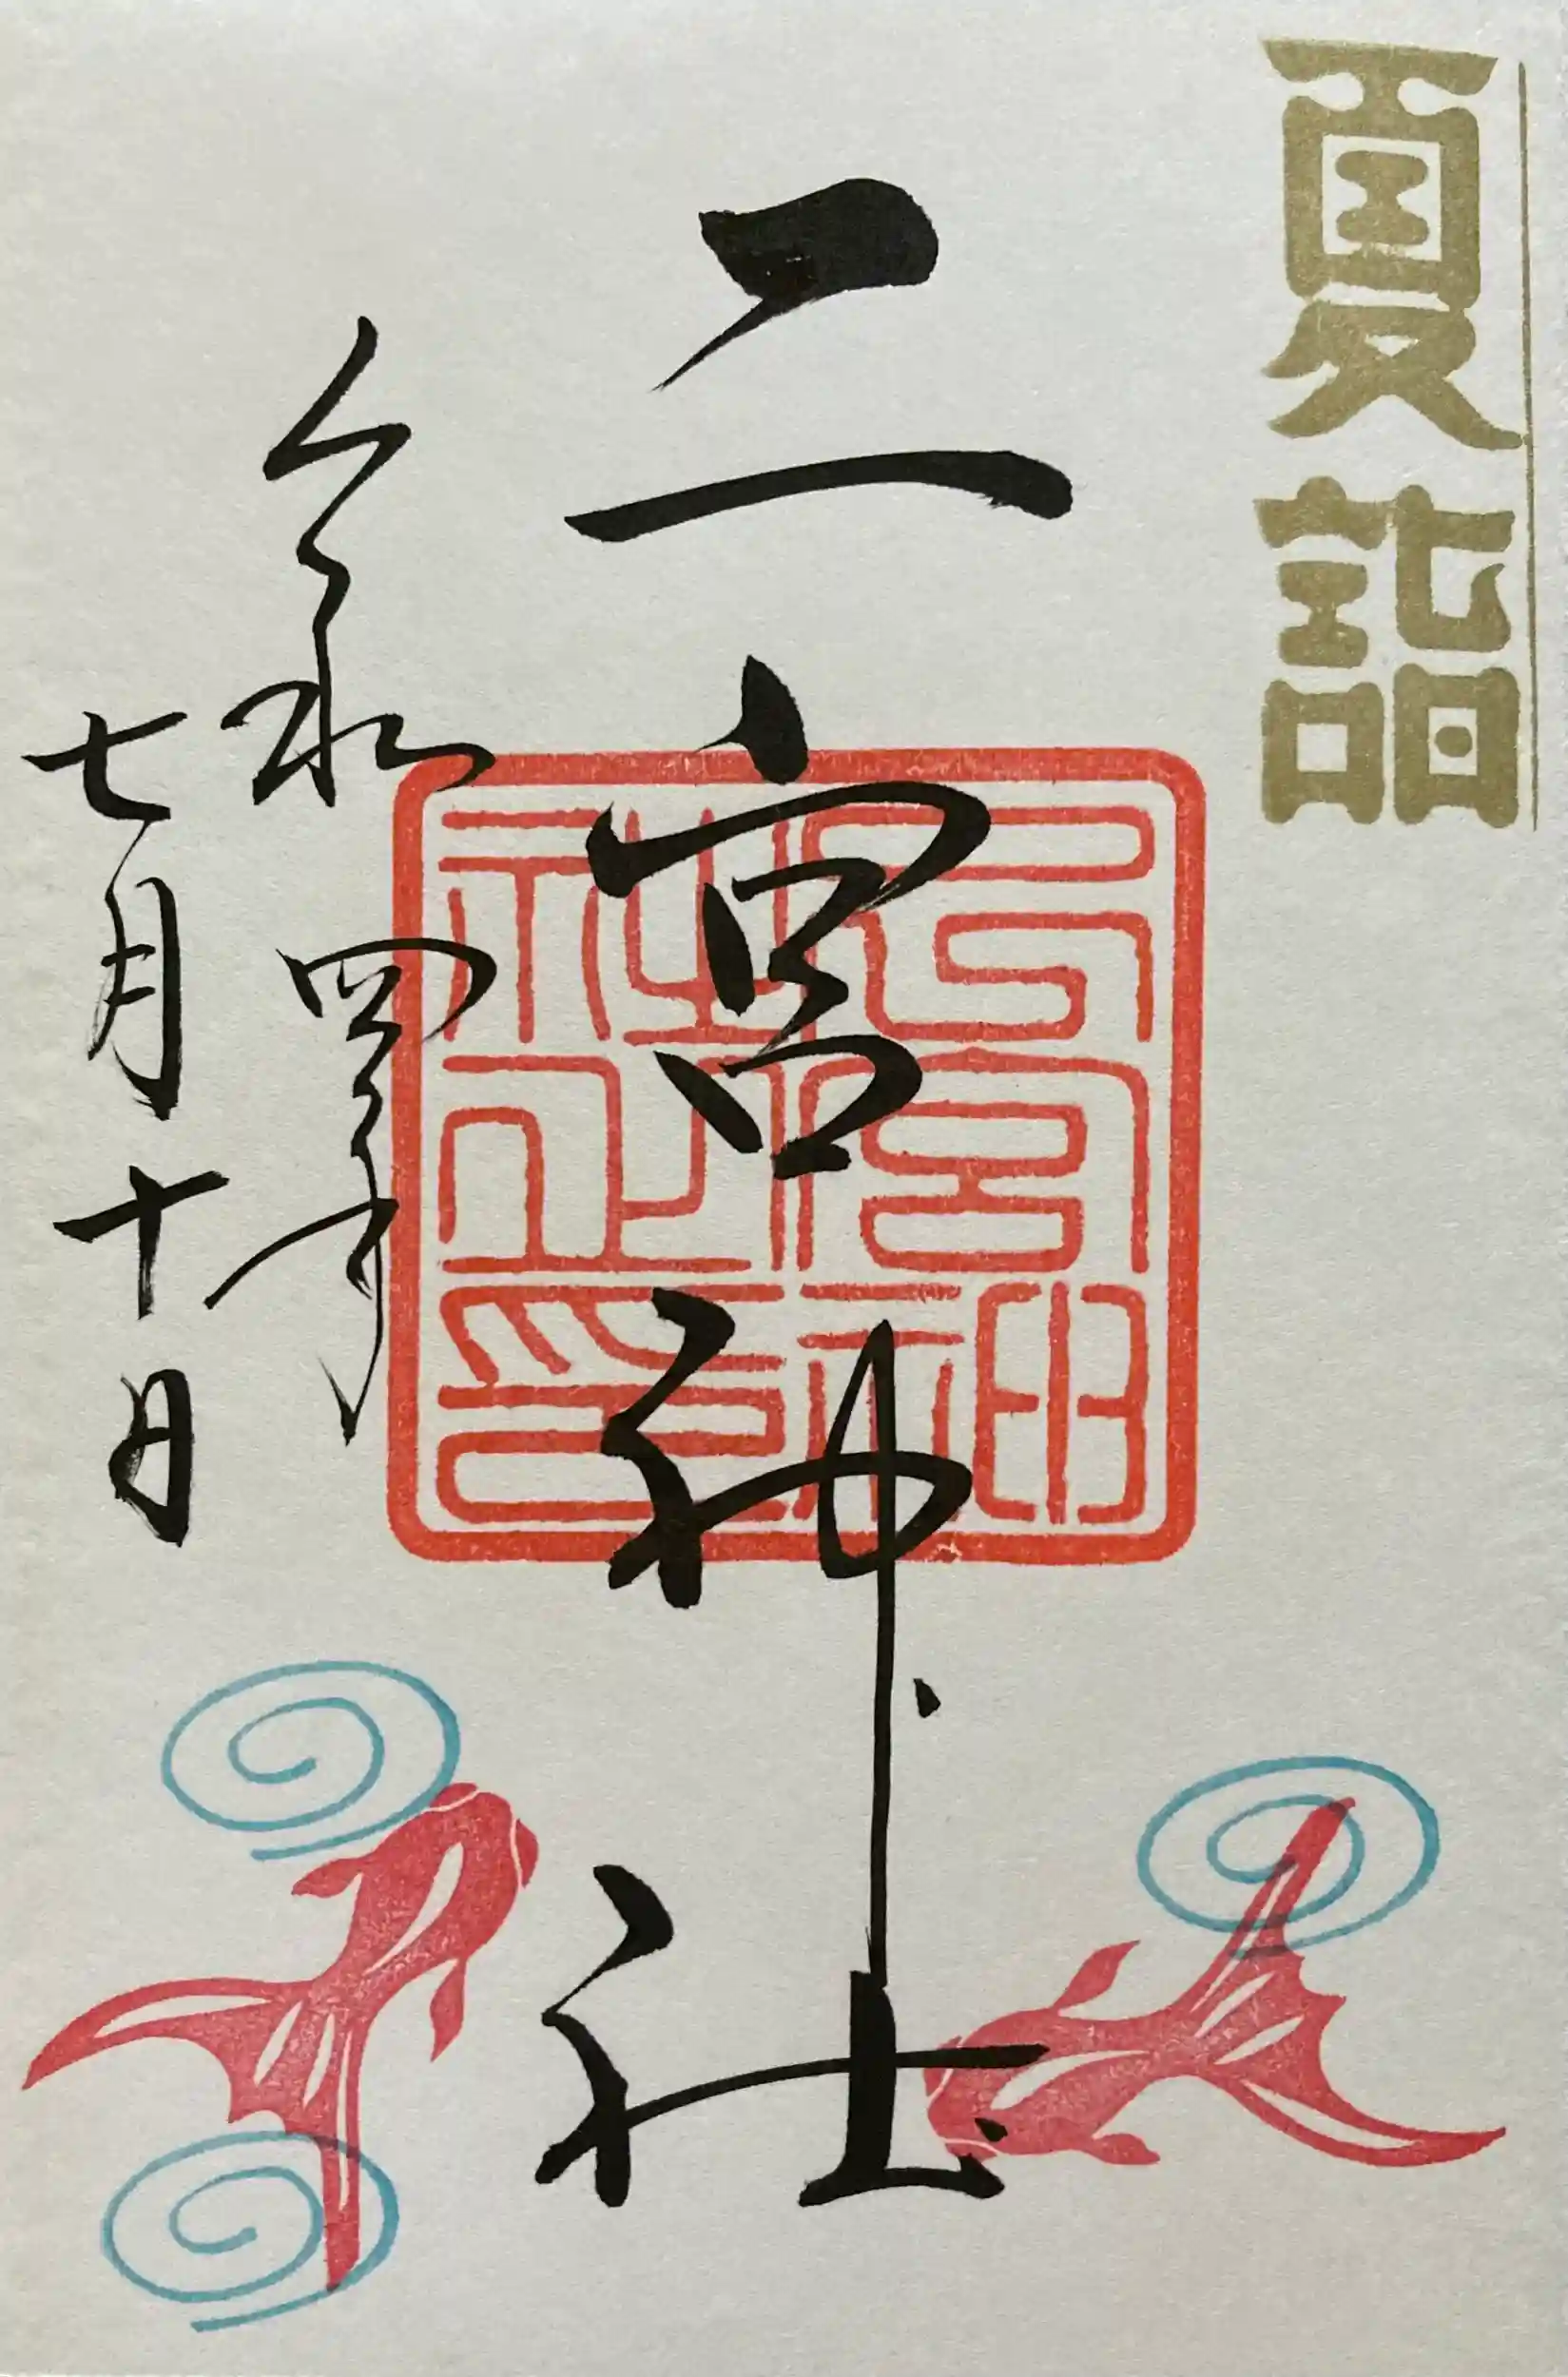 夏詣
二宮神社
二宮神
社之印
令和四年
七月十日